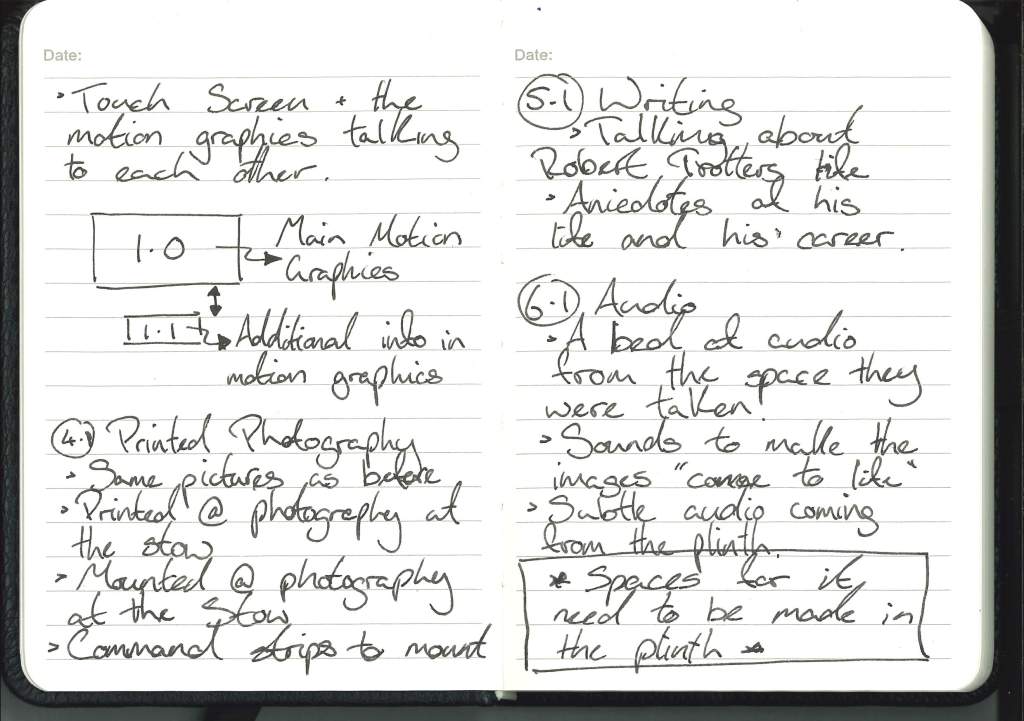 Date:
• Touch Screen + the
motion graphics talking
to each other.
1.0
Main Motion
Graphics
1.1
Additional info in
motion graphics
4.1 Printed Photography
• Same pictures as before
• Printed @ photography at
the stow
• Mounted @ photography
at the Stow
• Command strips to mount
Date:
5.1 Writing
• Talking about
Robert Trotters life
• Aniedotes of his
life and his career.
6.1 Audio
• A bed of audio
from the space they
were taken!
• Sounds to make the
images "come to life"
• Subtle audio coming
from the plinth.
* Spaces for it
need to be made in
the plinth *